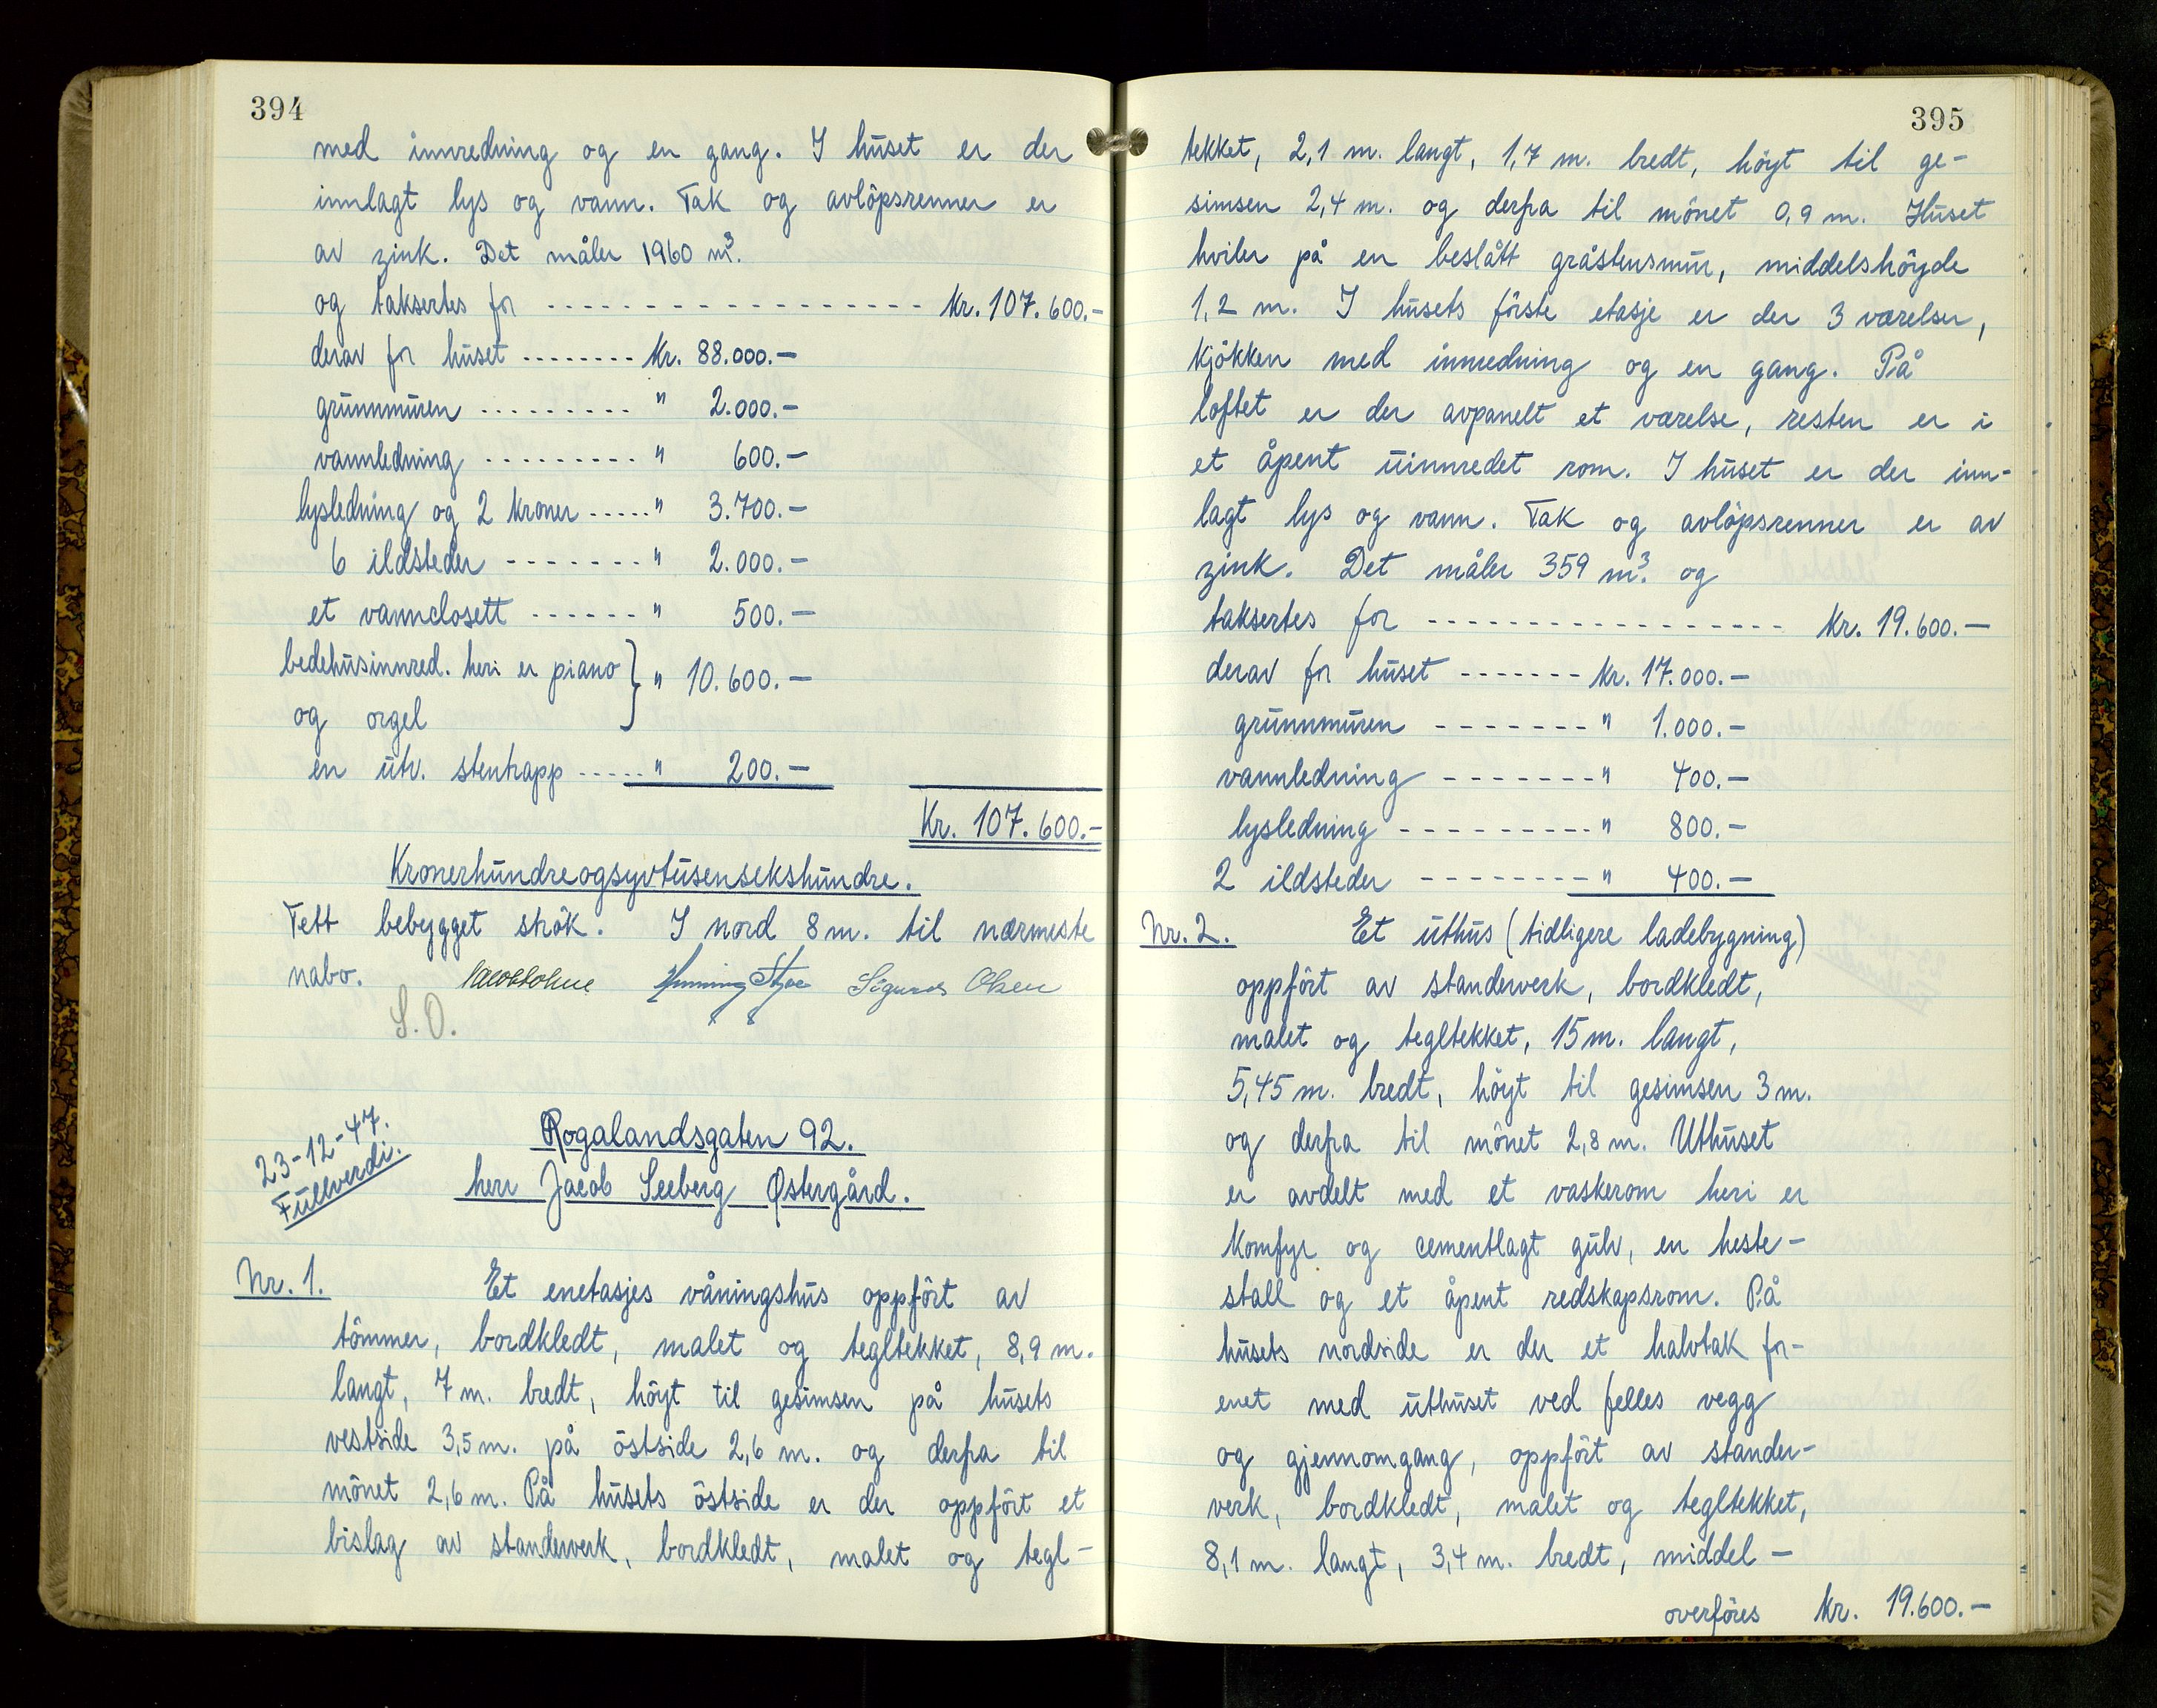 394
med innredning og en gang. I huset er der
innlagt lys og vann. Tak og avlöpsrenner er
av zink. Det måler 1960 m³.
og taksertes for ------------------ Kr. 107.600.-
derav for huset -------- Kr. 88.000.-
grunnmuren --------- " 2.000.-
vannledning --------- " 600.-
lysledning og 2 kroner ----- " 3.700.-
6 ildsteder ------- " 2.000.-
et vannclosett ------ " 500.-
bedehusinnred. heri er piano } " 10.600.-
og orgel
en utv. stentrapp ----- " 200.-
Kr. 107.600.-
Kronerhundreogsyvtusensekshundre.
Tett bebygget strök. I nord 8 m. til nærmeste
nabo. Sigurd Olsen
S.O.
23-12-47.
Fullverdi.
Rogalandsgaten 92.
herr Jacob Seeberg Østergård.
Nr. 1. Et enetasjes våningshus oppfört av
tömmer, bordkledt, malet og tegltekket, 8,9 m.
langt, 7 m. bredt, höyt til gesimsen på husets
vestside 3,5 m. på östside 2,6 m. og derfra til
mönet 2,6 m. På husets östside er der oppfört et
bislag av standerverk, bordkledt, malet og tegl-
395
tekket, 2,1 m. langt, 1,7 m. bredt, höyt til ge-
simsen 2,4 m. og derfra til mönet 0,9 m. Huset
hviler på en beslått gråstensmur, middelshöyde
1,2 m. I husets förste etasje er der 3 værelser,
kjökken med innredning og en gang. På
loftet er der avpanelt et værelse, resten er i
et åpent uinnredet rom. I huset er der inn-
lagt lys og vann. Tak og avlöpsrenner er av
zink. Det måler 359 m³. og
taksertes for ----------------- Kr. 19.600.-
derav for huset ------- Kr. 17.000.-
grunnmuren ------- " 1.000.-
vannledning ------- " 400.-
lysledning --------- " 800.-
2 ildsteder -------- " 400.-
Nr. 2. Et uthus (tidligere ladebygning)
oppfört av standerverk, bordkledt,
malet og tegltekket, 15 m. langt,
5,45 m. bredt, höyt til gesimsen 3 m.
og derfra til mönet 2,8 m. Uthuset
er avdelt med et vaskerom heri er
komfyr og cementlagt gulv, en heste-
stall og et åpent redskapsrom. På
husets nordside er der et halvtak for-
enet med uthuset ved felles vegg
og gjennomgang, oppfört av stander-
verk, bordkledt, malet og tegltekket,
8,1 m. langt, 3,4 m. bredt, middel-
overföres Kr. 19.600.-